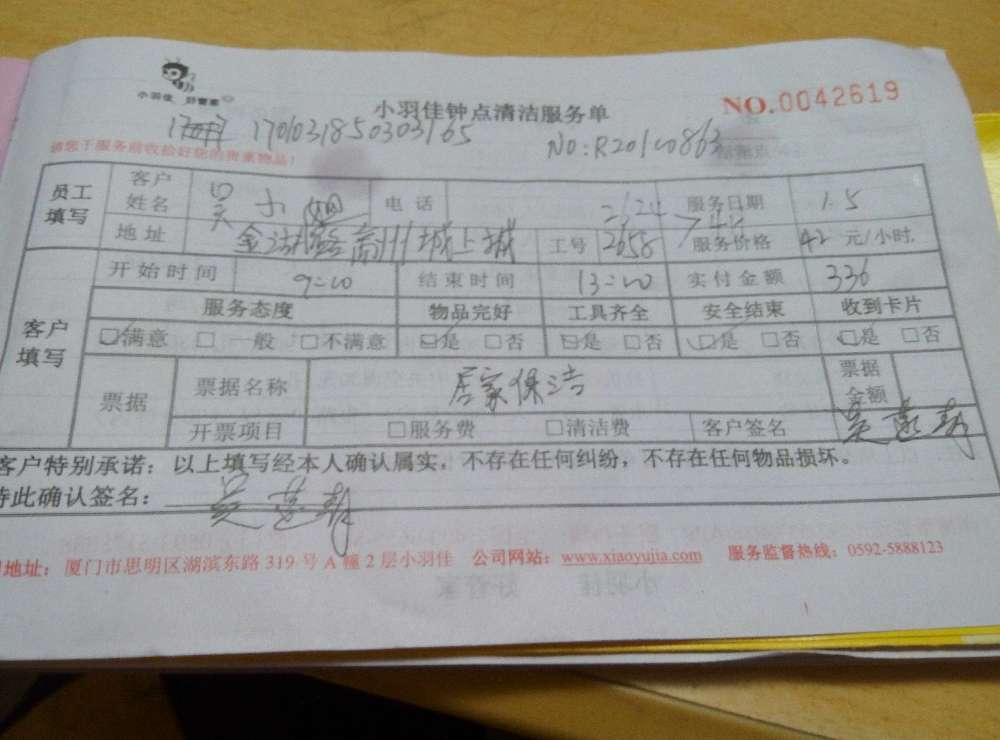 小羽佳 好管家
小羽佳钟点清洁服务单 NO.0042619
1701031850303165 NO:R20140863
请您于服务前收拾好您的贵重物品!
员工填写 客户姓名 吴小姐 电话 2124 服务日期 1.5
地址 城上城 工号 2658 服务价格 42 元/小时.
开始时间 9:00 结束时间 13:00 实付金额 336
服务态度 物品完好 工具齐全 安全结束 收到卡片
客户填写 满意 一般 不满意 是 否 是 否 是 否 是 否
票据 票据名称 居家保洁 票据金额
开票项目 服务费 清洁费 客户签名 吴
客户特别承诺:以上填写经本人确认属实,不存在任何纠纷,不存在任何物品损坏。
特此确认签名: 吴
地址:厦门市思明区湖滨东路 319 号 A 幢 2 层小羽佳 公司网站:www.xiaoyujia.com 服务监督热线:0592-5888123